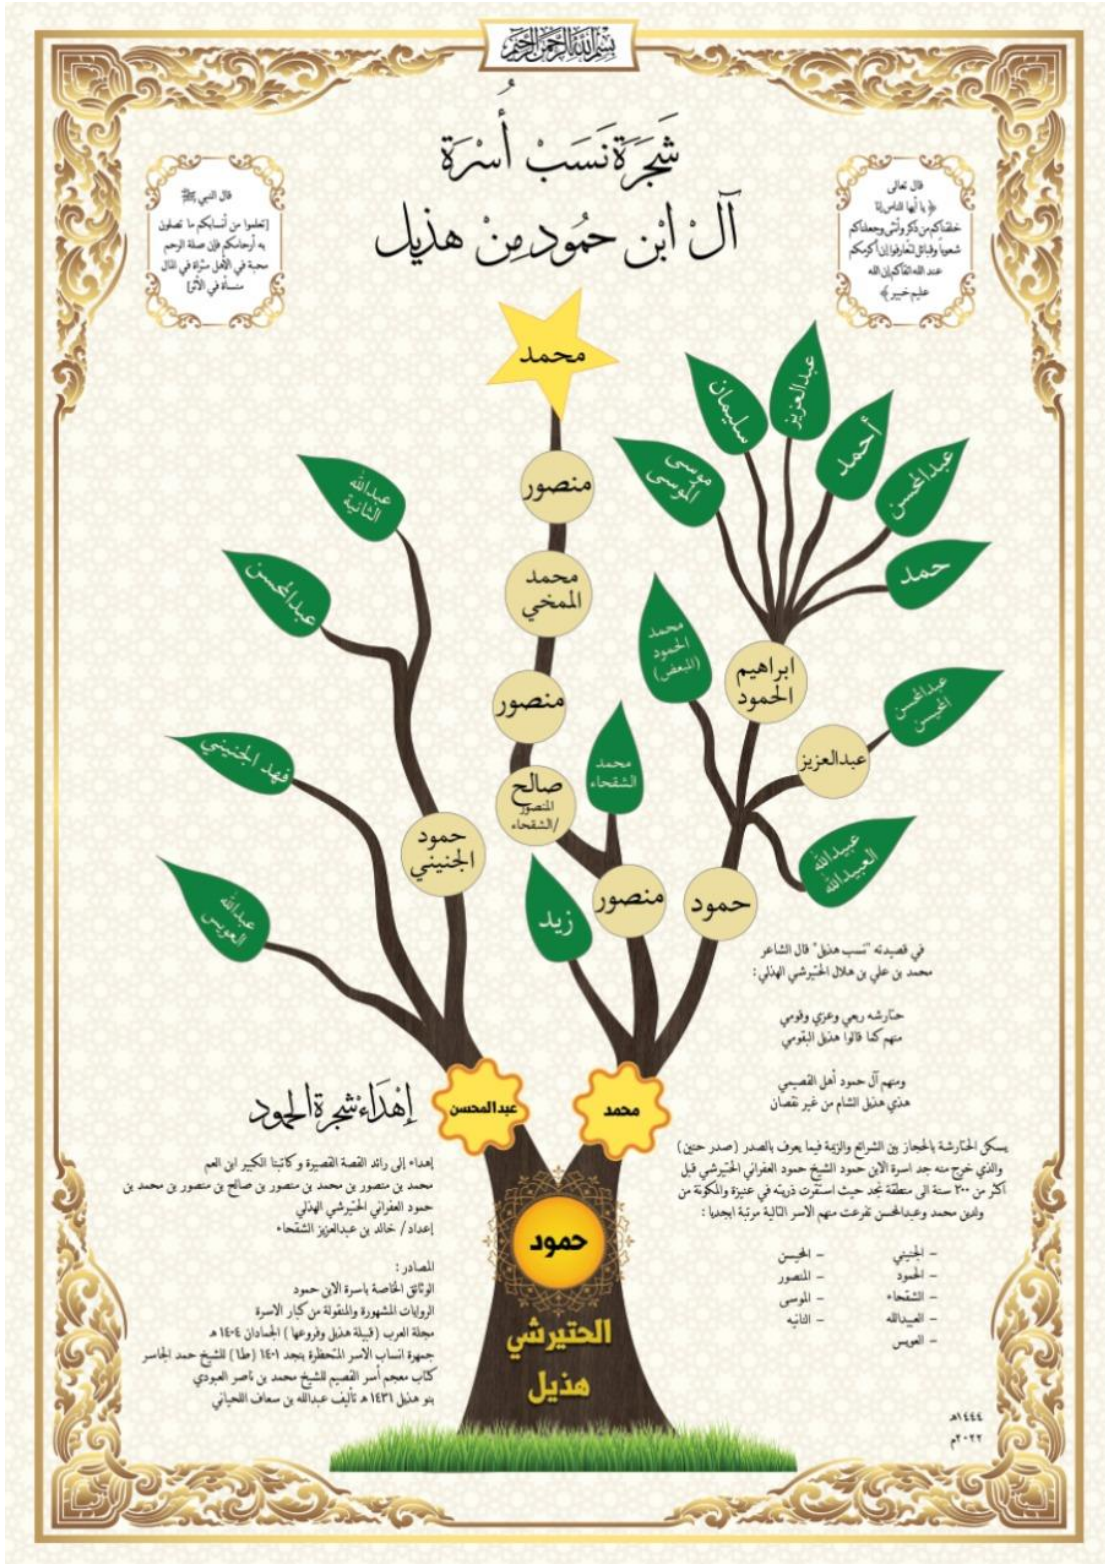 بسم الله الرحمن الرحيم
شَجَرَة نَسَبْ أُسْرَة
آلْ ابْن حمُود مِنْ هذيل
قال تعالى
﴿ يا أيها الناس إنا
خلقناكم من ذكر وأنثى وجعلناكم
شعوباً وقبائل لتعارفوا إن أكرمكم
عند الله اتقاكم إن الله
عليم خبير ﴾
قال النبي ﷺ
[تعلموا من أنسابكم ما تصلون
به أرحامكم فإن صلة الرحم
محبة في الأهل مثراة في المال
منسأة في الأثر]
محمد
منصور
محمد
الممخي
منصور
صالح
المنصور
/الشقحاء
محمد
الشقحاء
منصور
زيد
سليمان
عبدالعزيز
أحمد
عبدالمحسن
حمد
موسى
الموسى
ابراهيم
الحمود
محمد
الحمود
(البعض)
عبدالمحسن
الخميس
عبدالعزيز
عبيدالله
العبيدالله
حمود
عبدالله
الثانية
عبدالمحسن
فهد الجنيني
حمود
الجنيني
عبدالله
العويس
محمد
عبدالمحسن
حمود
الحتيرشي
هذيل
في قصيدته "نسب هذيل" قال الشاعر
محمد بن علي بن هلال الحتيرشي الهذلي :
حتارشه ربعي وعزي وقومي
منهم كما قالوا هذيل البقومي
ومنهم آل حمود أهل القصيمي
هذي هذيل الشام من غير نقصان
يسكن الحتارشة بالحجاز بين الشرائع والزيمة فيما يعرف بالصدر ( صدر حنين )
والذي خرج منه جد اسرة الابن حمود الشيخ حمود العفراني الحتيرشي قبل
اكثر من ٣٠٠ سنة الى منطقة نجد حيث استقرت ذريته في عنيزة والمكونة من
ولدين محمد وعبدالمحسن تفرعت منهم الاسر التالية مرتبة ابجديا :
- الجنيني
- الحمود
- الشقحاء
- العبيدالله
- العويس
- الخميس
- المنصور
- الموسى
- الثانيه
إهْدَاءْ شجرة الحمود
إهداء إلى رائد القصة القصيرة وكاتبنا الكبير ابن العم
محمد بن منصور بن محمد بن منصور بن صالح بن منصور بن محمد بن
حمود العفراني الحتيرشي الهذلي
إعداد / خالد بن عبدالعزيز الشقحاء
المصادر :
الوثائق الخاصة باسرة الابن حمود
الروايات المشهورة والمنقولة من كبار الاسرة
مجلة العرب ( قبيلة هذيل وفروعها ) الجمادان ١٤٠٤ هـ
جمهرة انساب الاسر المتحظرة بنجد ١٤٠١ ( ط١ ) للشيخ حمد الجاسر
كتاب معجم أسر القصيم للشيخ محمد بن ناصر العبودي
بنو هذيل ١٤٣١ هـ تأليف عبدالله بن سعاف اللحياني
١٤٤٤هـ
٢٠٢٢م